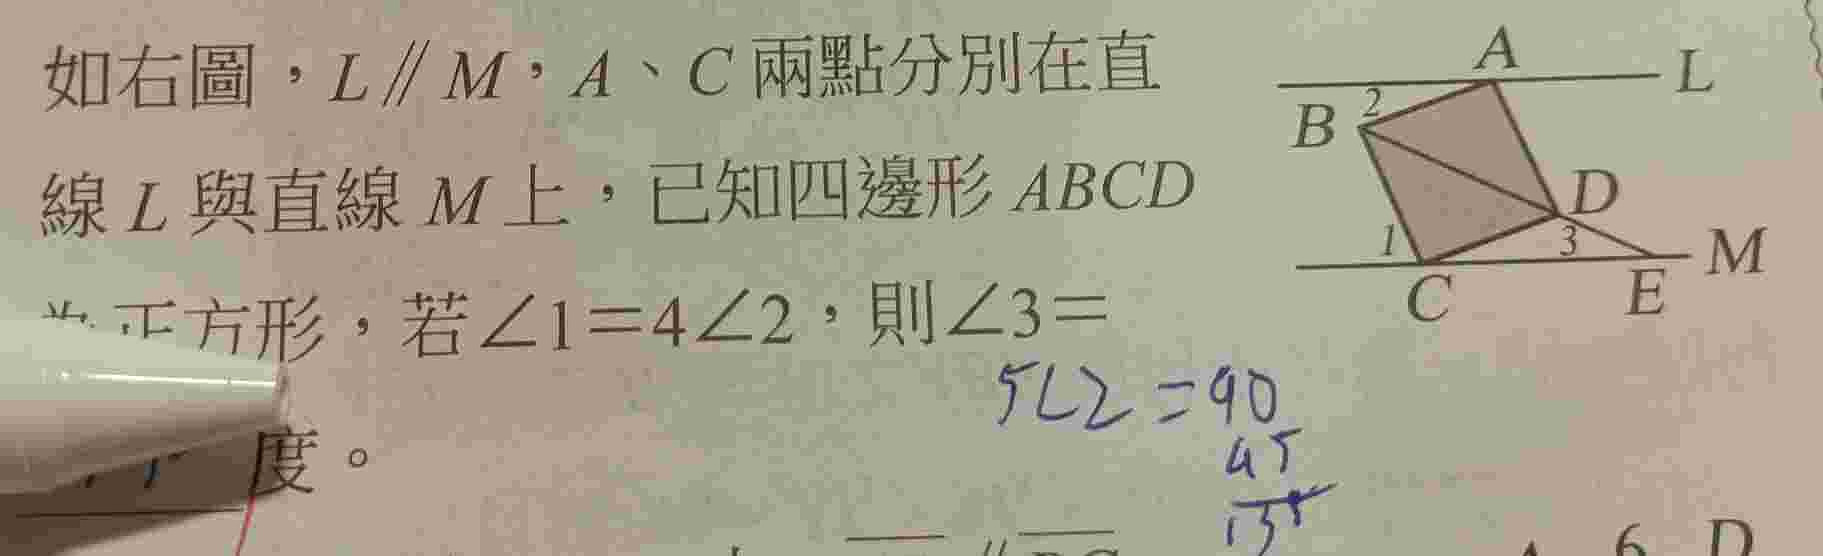 如右圖，L // M，A、C 兩點分別在直
線 L 與直線 M 上，已知四邊形 ABCD
正方形，若∠1＝4∠2，則∠3＝
度。
A
L
2
B
D
1
3
M
C
E
5∠2 = 90
45
135
6 D